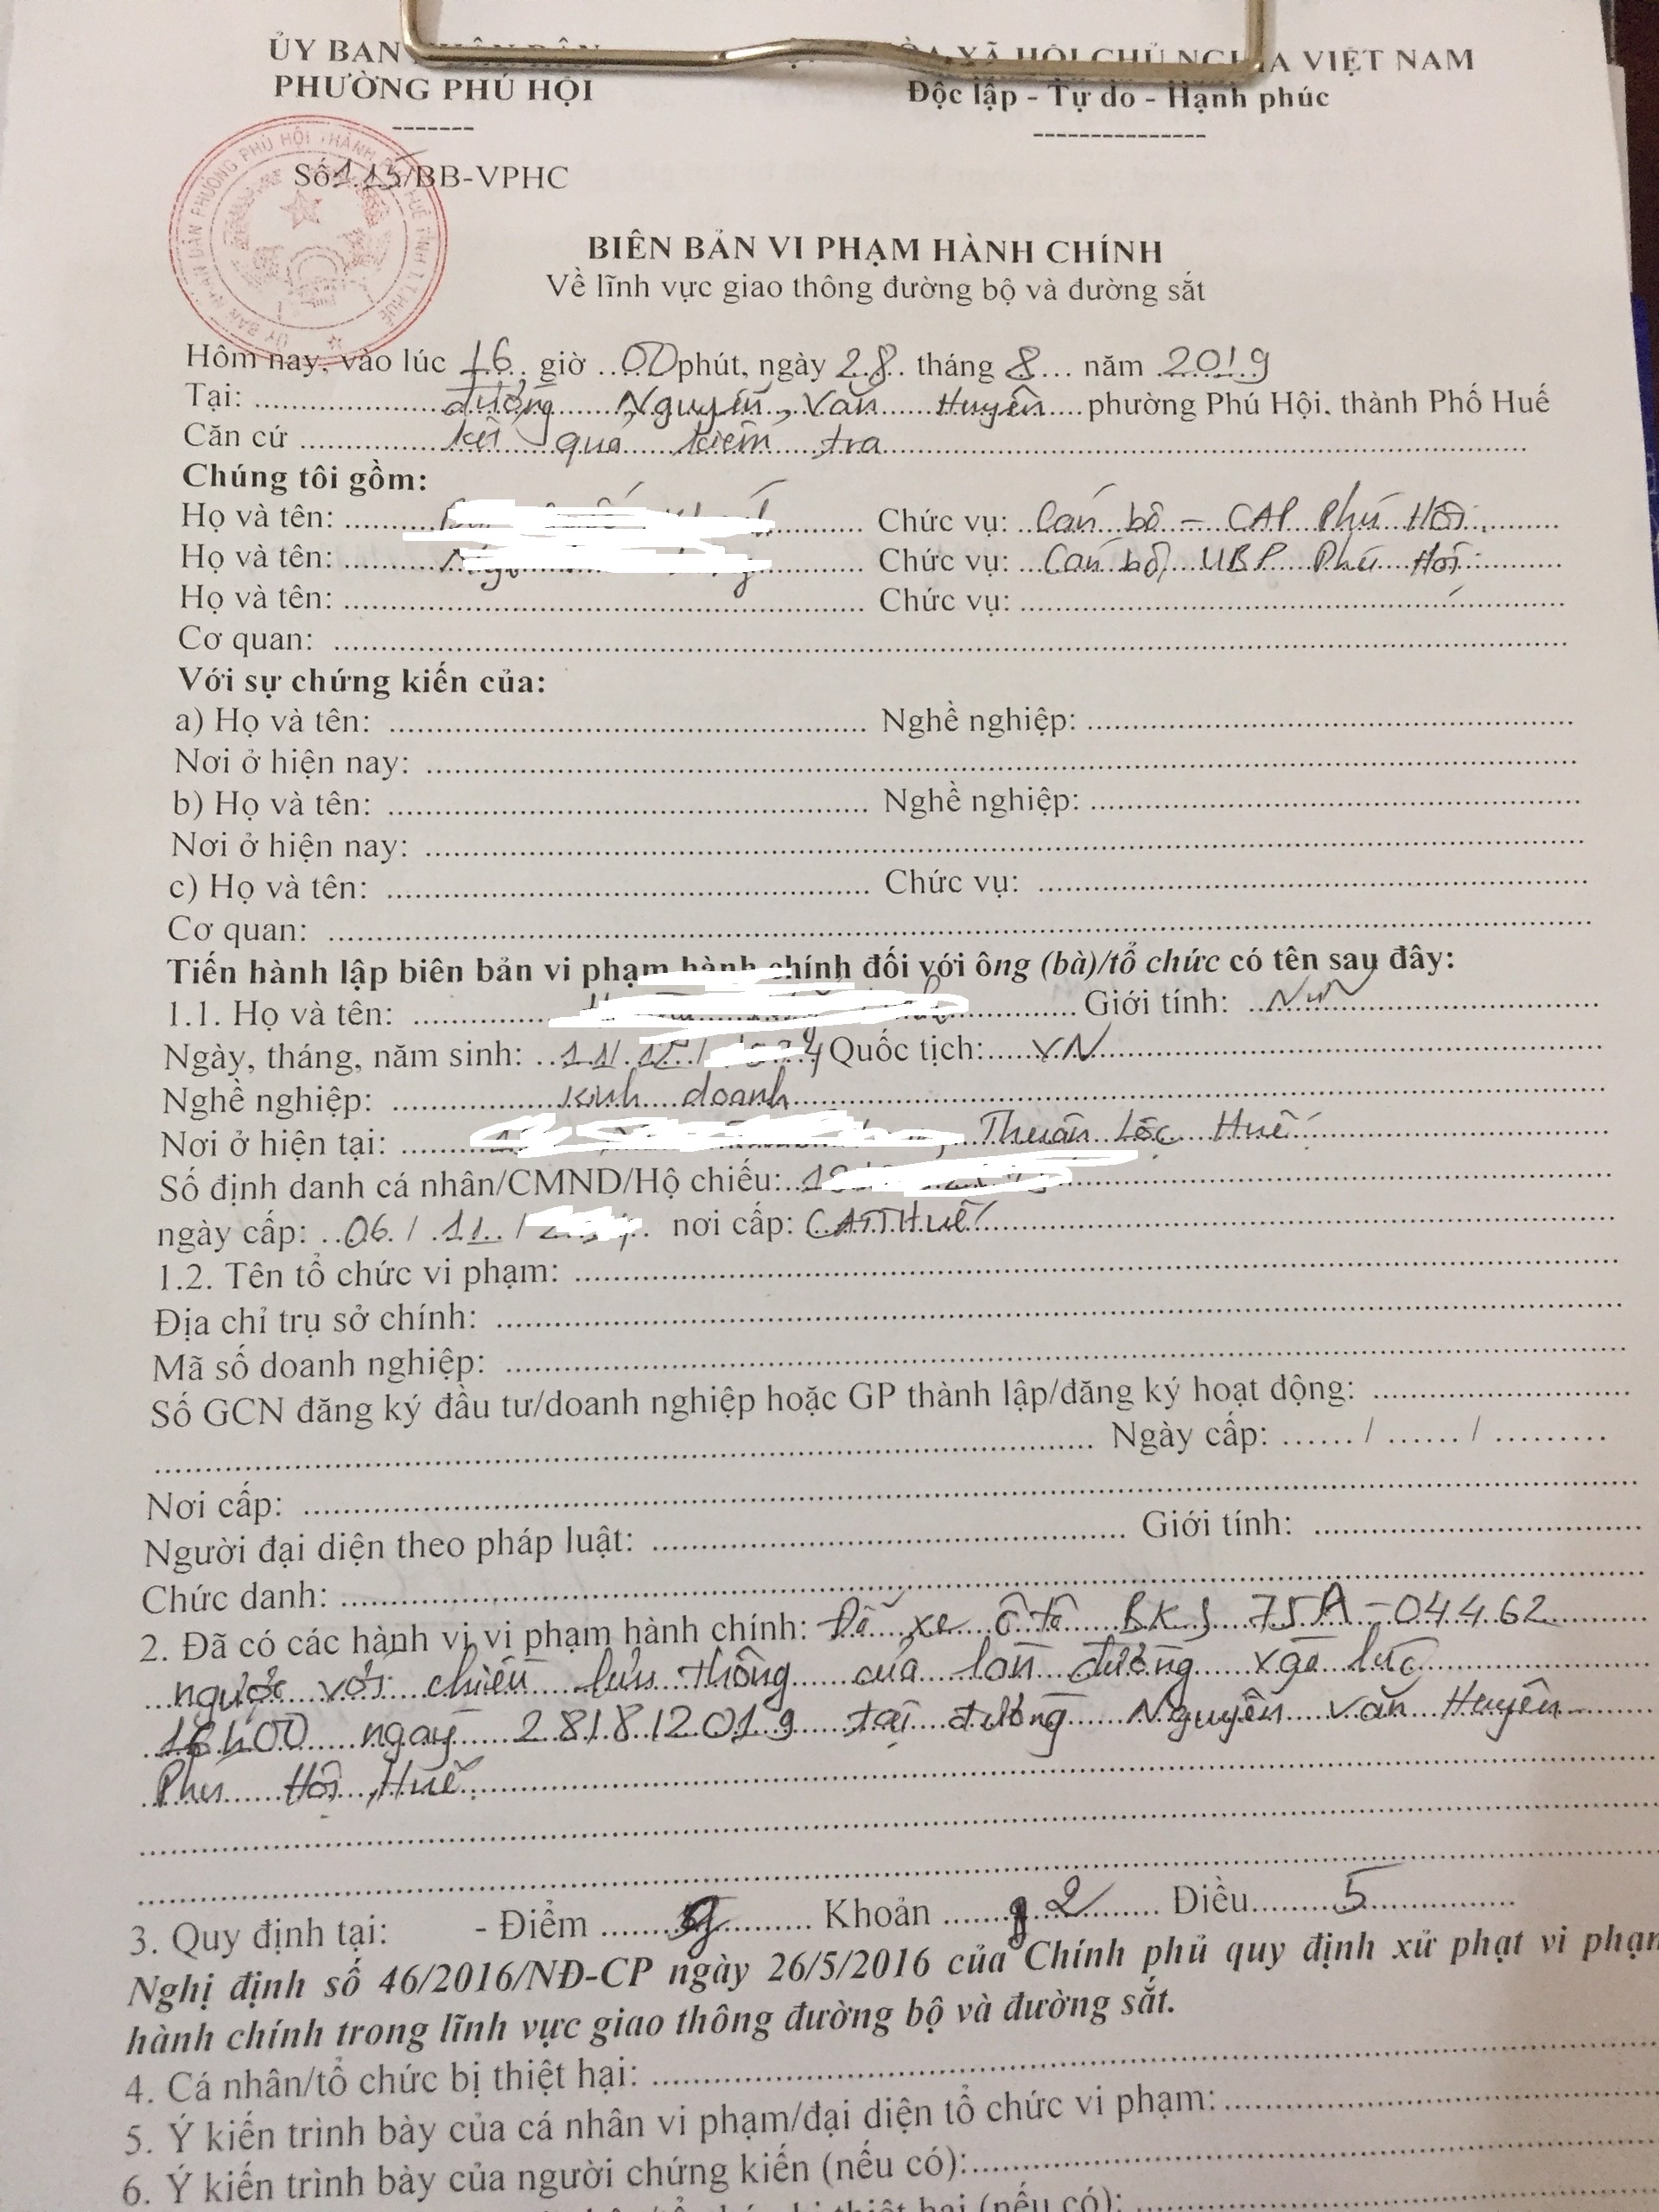 ỦY BAN NHÂN DÂN
HÒA XÃ HỘI CHỦ NGHĨA VIỆT NAM
PHƯỜNG PHÚ HỘI
Độc lập - Tự do - Hạnh phúc
Số 115/BB-VPHC
BIÊN BẢN VI PHẠM HÀNH CHÍNH
Về lĩnh vực giao thông đường bộ và đường sắt
Hôm nay, vào lúc 16 giờ 00 phút, ngày 28 tháng 8 năm 2019
Tại: đường Nguyễn Văn Huyên phường Phú Hội, thành Phố Huế
Căn cứ kết quả kiểm tra
Chúng tôi gồm:
Họ và tên: Chức vụ: Cán bộ - CAP Phú Hội
Họ và tên: Chức vụ: Cán bộ UBP Phú Hội
Họ và tên: Chức vụ:
Cơ quan:
Với sự chứng kiến của:
a) Họ và tên: Nghề nghiệp:
Nơi ở hiện nay:
b) Họ và tên: Nghề nghiệp:
Nơi ở hiện nay:
c) Họ và tên: Chức vụ:
Cơ quan:
Tiến hành lập biên bản vi phạm hành chính đối với ông (bà)/tổ chức có tên sau đây:
1.1. Họ và tên: Giới tính: Nữ
Ngày, tháng, năm sinh: 11/12/ Quốc tịch: VN
Nghề nghiệp: Kinh doanh
Nơi ở hiện tại: Thuận Lộc Huế
Số định danh cá nhân/CMND/Hộ chiếu:
ngày cấp: 06 / 11 / nơi cấp: CATTHuế
1.2. Tên tổ chức vi phạm:
Địa chỉ trụ sở chính:
Mã số doanh nghiệp:
Số GCN đăng ký đầu tư/doanh nghiệp hoặc GP thành lập/đăng ký hoạt động:
Ngày cấp: ...... / ...... / .........
Nơi cấp:
Người đại diện theo pháp luật: Giới tính:
Chức danh:
2. Đã có các hành vi vi phạm hành chính: Để xe ô tô BKS 75A-04462
ngược với chiều lưu thông của làn đường xảo lúc
16h00 ngày 28/8/2019 tại đường Nguyễn Văn Huyên
Phú Hội, Huế.
3. Quy định tại: - Điểm g Khoản 2 Điều 5
Nghị định số 46/2016/NĐ-CP ngày 26/5/2016 của Chính phủ quy định xử phạt vi phạm
hành chính trong lĩnh vực giao thông đường bộ và đường sắt.
4. Cá nhân/tổ chức bị thiệt hại:
5. Ý kiến trình bày của cá nhân vi phạm/đại diện tổ chức vi phạm:
6. Ý kiến trình bày của người chứng kiến (nếu có):